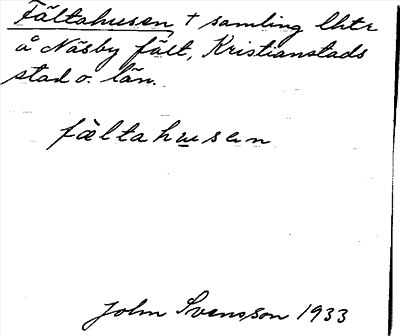 Fältahusen + samling lhtr
å Näsby fält, Kristianstads
stad o. län.
fältahusen
John Svensson 1933